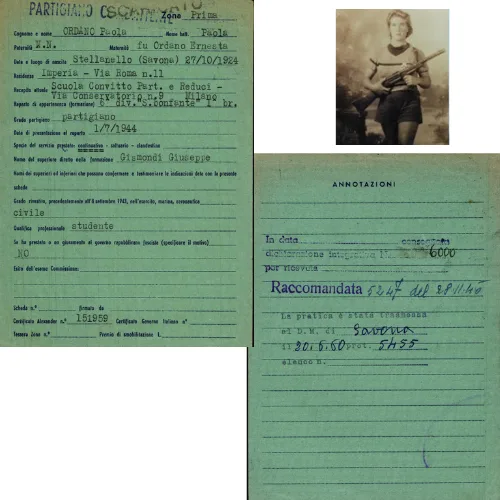 PARTIGIANO CO
Zona Prima
Cognome e nome ORDANO Paola Nome batt. Paola
Paternità N.N. Maternità fu Ordano Ernesta
Data e luogo di nascita Stellanello (Savona) 27/10/1924
Residenza Imperia - Via Roma n.11
Recapito attuale Scuola Convitto Part. e Reduci -
Via Conservatorio n.9 Milano
Reparto di appartenenza (formazione) div. S.Bonfante 1 br.
Grado partigiano partigiano
Data di presentazione al reparto 1/7/1944
Specie del servizio prestato: continuativo - saltuario - clandestino
Nome del superiore diretto nella formazione Gismondi Giuseppe
Nomi dei superiori ed inferiori che possono confermare e testimoniare le indicazioni date con la presente
scheda
Grado rivestito, precedentemente all'8 settembre 1943, nell'esercito, marina, aeronautica
civile
Qualifica professionale studente
Se ha prestato o no giuramento al governo repubblicano fascista (specificare il motivo)
NO
Esito dell'esame Commissione:
Scheda n.° firmata da
Certificato Alexander n.° 151959 Certificato Governo Italiano n°
Tessera Zona n.° Premio di smobilitazione L.
ANNOTAZIONI
In data consegnata
dichiarazione integrativa 6000
per ricevuta
Raccomandata 5247 del 28.11.40
La pratica è stata trasmessa
al D.M. di Savona
il 20.6.60 prot. 5455
elenco n.